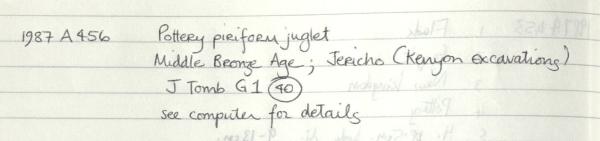 1987 A 456 Pottery piriform juglet
Middle Bronze Age; Jericho (Kenyon excavations)
J Tomb G1 40
see computer for details